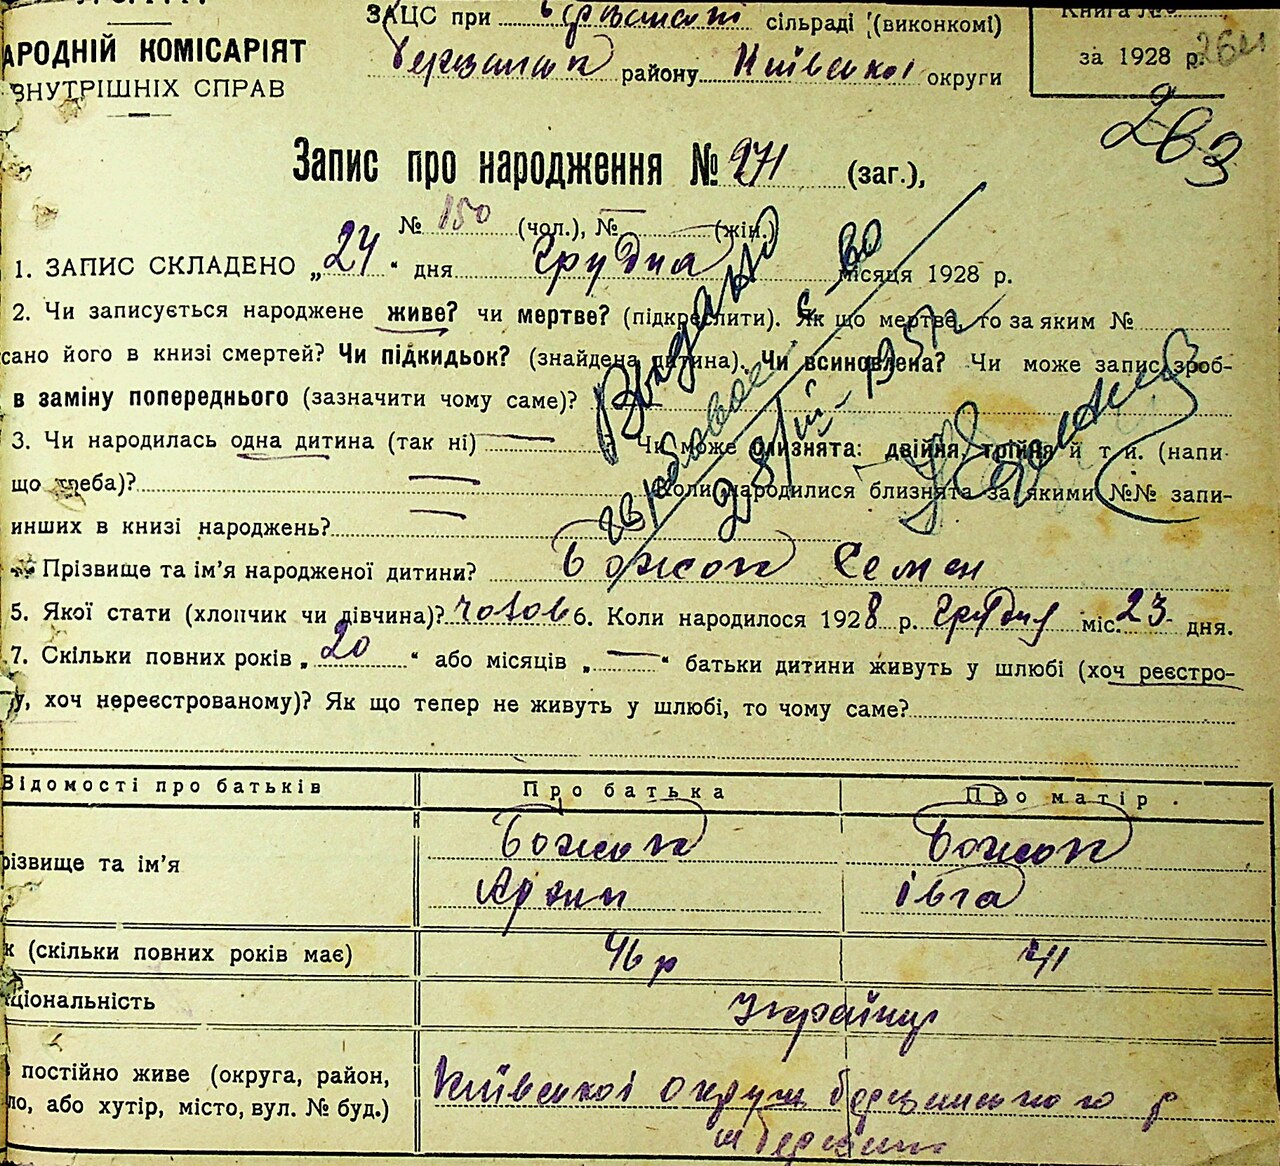 АРОДНІЙ КОМІСАРІЯТ
ВНУТРІШНІХ СПРАВ
ЗАЦС при сільраді (виконкомі)
району Київської округи
Книга №
за 1928 р. 264
263
Запис про народження № 271 (заг.),
№ 150 (чол.), № — (жін.)
1. ЗАПИС СКЛАДЕНО „24“ дня Грудня місяця 1928 р.
2. Чи записується народжене живе? чи мертве? (підкреслити). Як що мертве, то за яким №
сано його в книзі смертей? Чи підкидьок? (знайдена дитина). Чи всиновлена? Чи може запис зроб-
в заміну попереднього (зазначити чому саме)?
3. Чи народилась одна дитина (так ні) — Чи може близнята: двійня, трійня й т. и. (напи-
що треба)? — Коли народилися близнята за якими №№ запи-
инших в книзі народжень? —
Видано с-во
28/III-1957
Прізвище та ім’я народженої дитини? Божок Семен
5. Якої стати (хлопчик чи дівчина)? чолов 6. Коли народилося 1928 р. Грудня міс. 23 дня.
7. Скільки повних років „20“ або місяців „—“ батьки дитини живуть у шлюбі (хоч реєстро-
у, хоч нереєстрованому)? Як що тепер не живуть у шлюбі, то чому саме?
Відомості про батьків Про батька Про матір
різвище та ім’я Божок Божок
Архип Івга
к (скільки повних років має) 46 р 41
ціональність Українці
постійно живе (округа, район, Київської округи
ло, або хутір, місто, вул. № буд.)